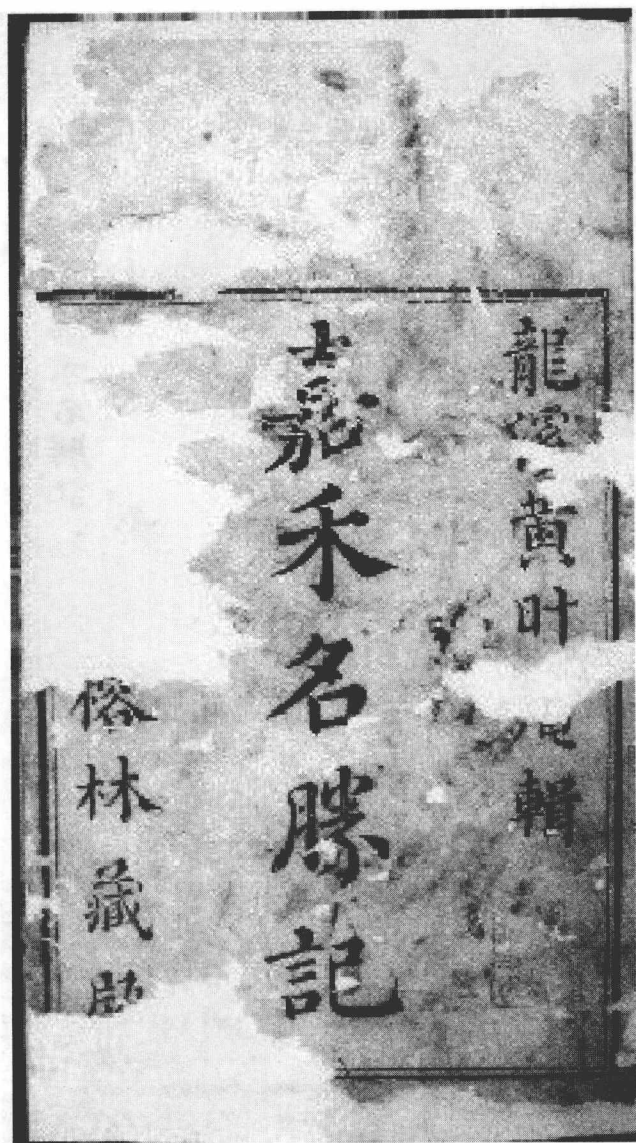 龍溪黃叶輯
嘉禾名勝記
榕林藏